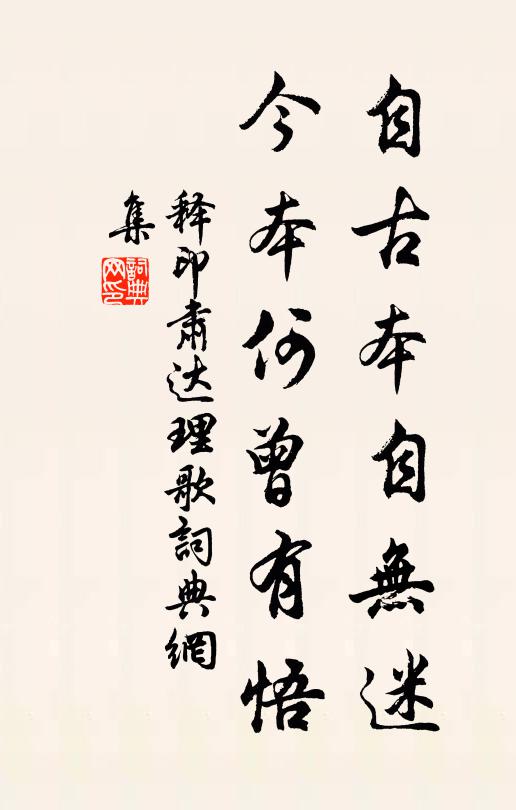 自古本自無迷
今本何曾有悟
释印肅达理歌詞典網
集
詞典網印